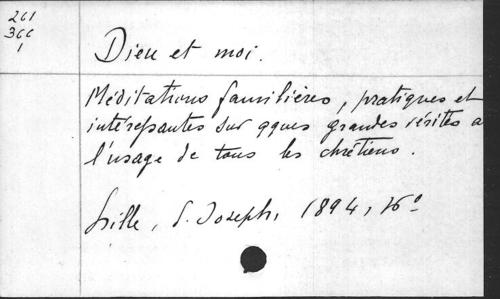 261
366
1
Dieu et moi.
Méditations familières, pratiques et
intéressantes sur qques grandes vérités à
l'usage de tous les chrétiens.
Lille, S. Joseph, 1894, 16°